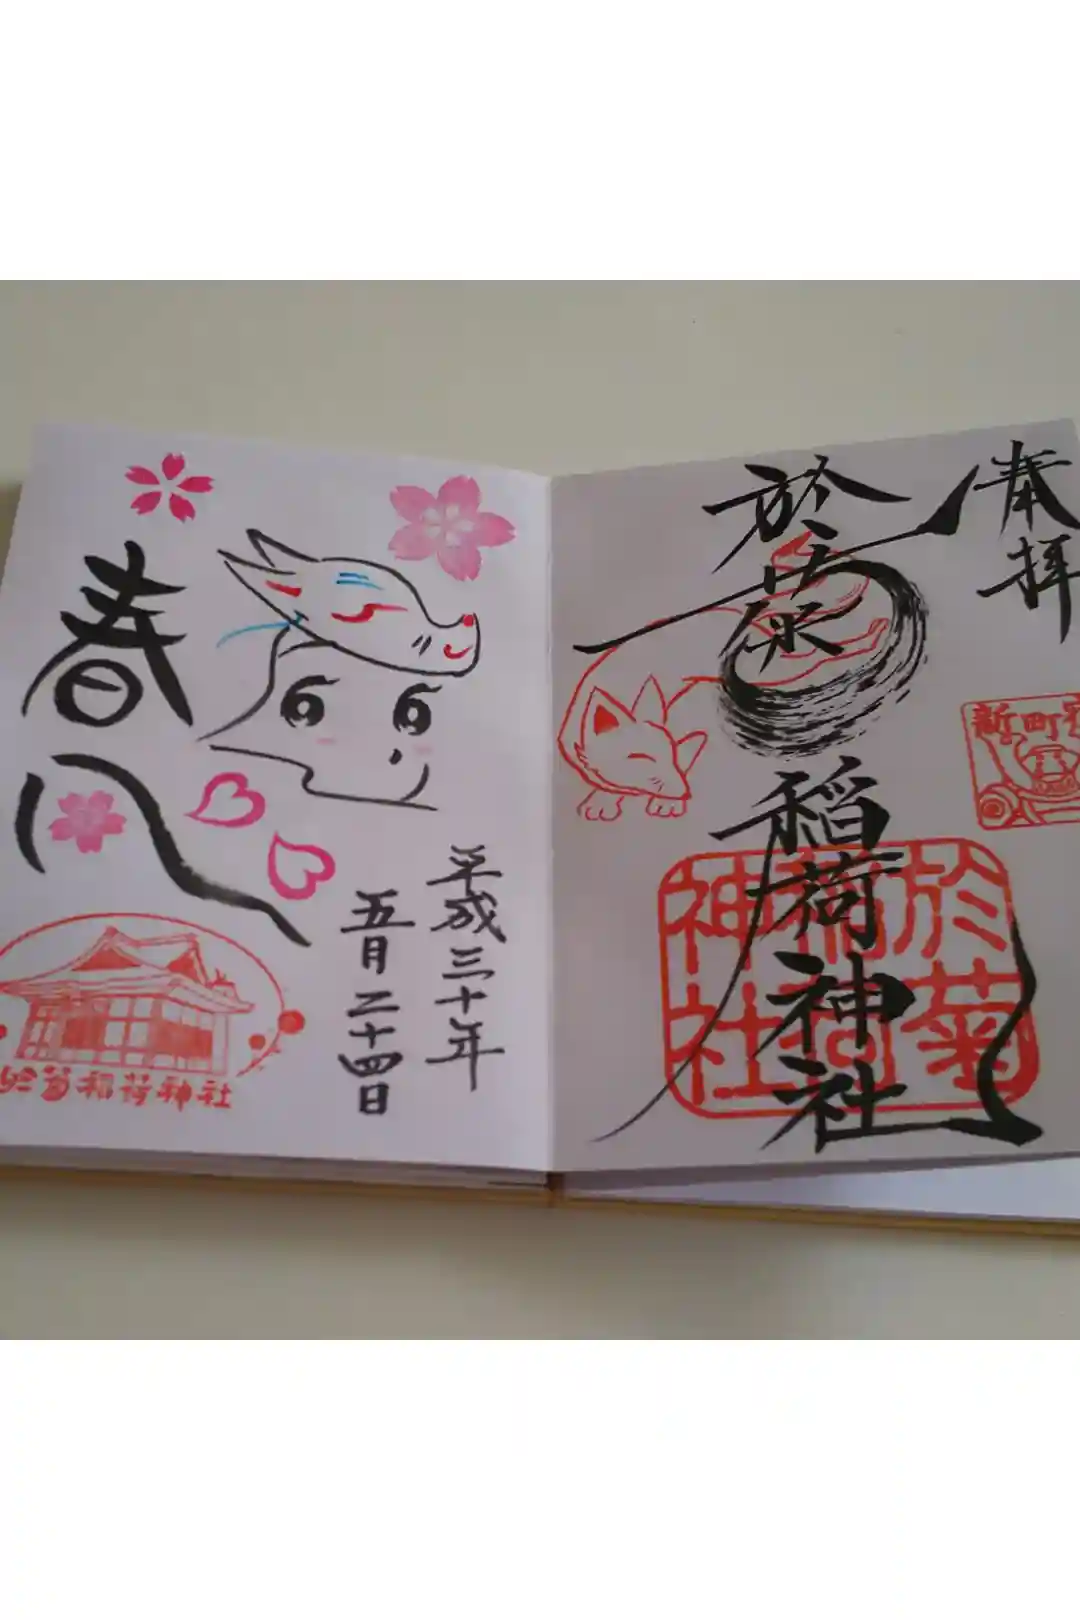 奉拝
於菊稲荷神社
新町宿
於菊
稲荷
神社
平成三十年
五月二十四日
春
於菊稲荷神社